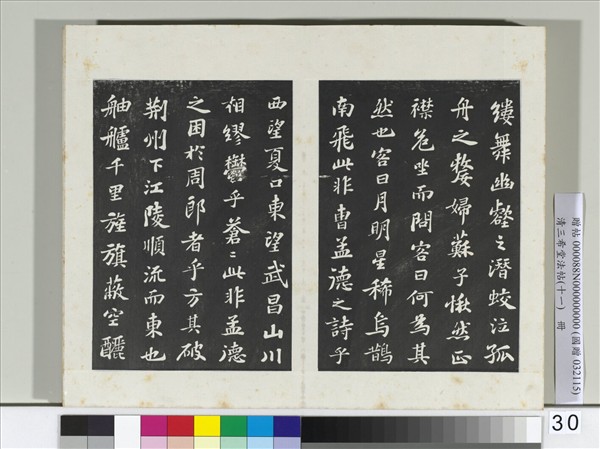 縷舞幽壑之潛蛟泣孤
舟之嫠婦蘇子愀然正
襟危坐而問客曰何為其
然也客曰月明星稀烏鵲
南飛此非曹孟德之詩乎
西望夏口東望武昌山川
相繆鬱乎蒼〻此非孟德
之困於周郎者乎方其破
荊州下江陵順流而東也
舳艫千里旌旗蔽空釃
贈帖 000088N000000000 (國贈 032115)
清三希堂法帖(十一) 冊
30